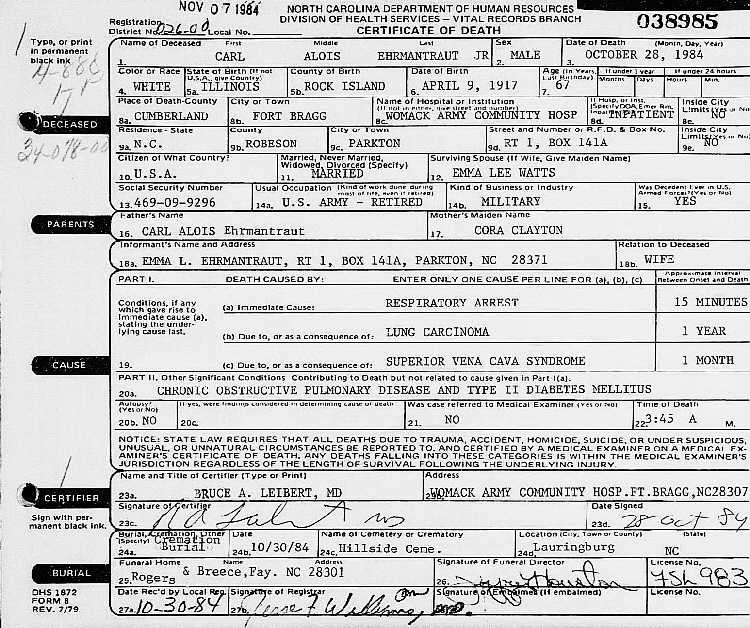 NOV 07 1984
NORTH CAROLINA DEPARTMENT OF HUMAN RESOURCES
DIVISION OF HEALTH SERVICES - VITAL RECORDS BRANCH
CERTIFICATE OF DEATH
038985
Registration
District No. 026-00 Local No.
Type, or print
in permanent
black ink
Name of Deceased First Middle Last
1. CARL ALOIS EHRMANTRAUT JR
Sex
2. MALE
Date of Death (Month, Day, Year)
3. OCTOBER 28, 1984
DECEASED
Color or Race
4. WHITE
State of Birth (If not U.S.A., give Country)
5a. ILLINOIS
County of Birth
5b. ROCK ISLAND
Date of Birth
6. APRIL 9, 1917
Age (In Years, Last Birthday)
7. 67
If under 1 year
Months Days
If under 24 hours
Hours Min.
Place of Death-County
8a. CUMBERLAND
City or Town
8b. FORT BRAGG
Name of Hospital or Institution
(If not in either, give street and number)
8c. WOMACK ARMY COMMUNITY HOSP
If Hosp. or Inst.
(Specify) DOA, Emer Rm,
INPATIENT
Inside City
Limits (Yes or No)
NO
24-078-00
Residence - State
9a. N.C.
County
9b. ROBESON
City or Town
9c. PARKTON
Street and Number or R.F.D. & Box No.
9d. RT 1, BOX 141A
Inside City
Limits (Yes or No)
9e. NO
Citizen of What Country?
10. U.S.A.
Married, Never Married,
Widowed, Divorced (Specify)
11. MARRIED
Surviving Spouse (If Wife, Give Maiden Name)
12. EMMA LEE WATTS
Social Security Number
13. 469-09-9296
Usual Occupation (Kind of work done during
most of life, even if retired)
14a. U.S. ARMY - RETIRED
Kind of Business or Industry
14b. MILITARY
Was Decedent Ever in U.S.
Armed Forces? (Yes or No)
15. YES
PARENTS
Father's Name
16. CARL ALOIS Ehrmantraut
Mother's Maiden Name
17. CORA CLAYTON
Informant's Name and Address
18a. EMMA L. EHRMANTRAUT, RT 1, BOX 141A, PARKTON, NC 28371
Relation to Deceased
18b. WIFE
PART I. DEATH CAUSED BY: ENTER ONLY ONE CAUSE PER LINE FOR (a), (b), (c)
Approximate Interval
Between Onset and Death
Conditions, if any
which gave rise to
immediate cause (a),
stating the under-
lying cause last.
(a) Immediate Cause: RESPIRATORY ARREST 15 MINUTES
(b) Due to, or as a consequence of: LUNG CARCINOMA 1 YEAR
CAUSE
19. (c) Due to, or as a consequence of: SUPERIOR VENA CAVA SYNDROME 1 MONTH
PART II. Other Significant Conditions Contributing to Death but not related to cause given in Part I(a).
20a. CHRONIC OBSTRUCTIVE PULMONARY DISEASE AND TYPE II DIABETES MELLITUS
Autopsy?
(Yes or No)
20b. NO
If yes, were findings considered in determining cause of death
20c.
Was case referred to Medical Examiner (Yes or No)
21. NO
Time of Death
22. 3:45 A M.
NOTICE: STATE LAW REQUIRES THAT ALL DEATHS DUE TO TRAUMA, ACCIDENT, HOMICIDE, SUICIDE, OR UNDER SUSPICIOUS,
UNUSUAL, OR UNNATURAL CIRCUMSTANCES BE REPORTED TO, AND CERTIFIED BY A MEDICAL EXAMINER ON A MEDICAL EX-
AMINER'S CERTIFICATE OF DEATH. ANY DEATHS FALLING INTO THESE CATEGORIES IS WITHIN THE MEDICAL EXAMINER'S
JURISDICTION REGARDLESS OF THE LENGTH OF SURVIVAL FOLLOWING THE UNDERLYING INJURY.
CERTIFIER
Sign with per-
manent black ink.
Name and Title of Certifier (Type or Print)
23a. BRUCE A. LEIBERT, MD
Address
23b. WOMACK ARMY COMMUNITY HOSP.FT.BRAGG,NC28307
Signature of Certifier
23c.
Date Signed
23d. 28 Oct 84
Burial, Cremation, Other
(Specify) Cremation
24a. Burial
Date
24b. 10/30/84
Name of Cemetery or Crematory
24c. Hillside Ceme.
Location (City, Town or County) (State)
24d. Lauringburg NC
BURIAL
Funeral Home Name Address
25. Rogers & Breece,Fay. NC 28301
Signature of Funeral Director
26.
License No.
FSL 983
DHS 1872
FORM 8
REV. 7/79
Date Rec'd by Local Reg.
27a. 10-30-84
Signature of Registrar
27b. Jesse F Williams
Signature of Embalmer (If embalmed)
License No.